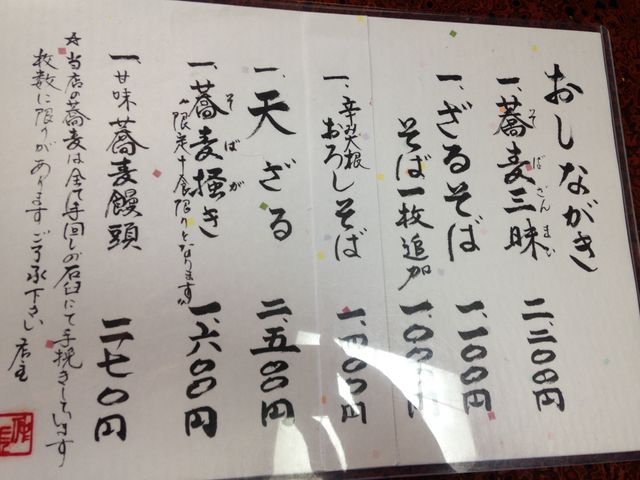 おしながき
一、蕎麦三昧 二、二〇〇円
そばざんまい
一、ざるそば 一、一〇〇円
そば一枚追加 一、〇〇〇円
一、辛み大根おろしそば 一、四〇〇円
一、天ざる 二、五〇〇円
一、蕎麦掻き 一、六〇〇円
そばがき
"限定十食限りとなります"
一、甘味 蕎麦饅頭 二七〇円
☆当店の蕎麦は全て手回しの石臼にて手挽きしています
枚数に限りがあります ご了承下さい 店主